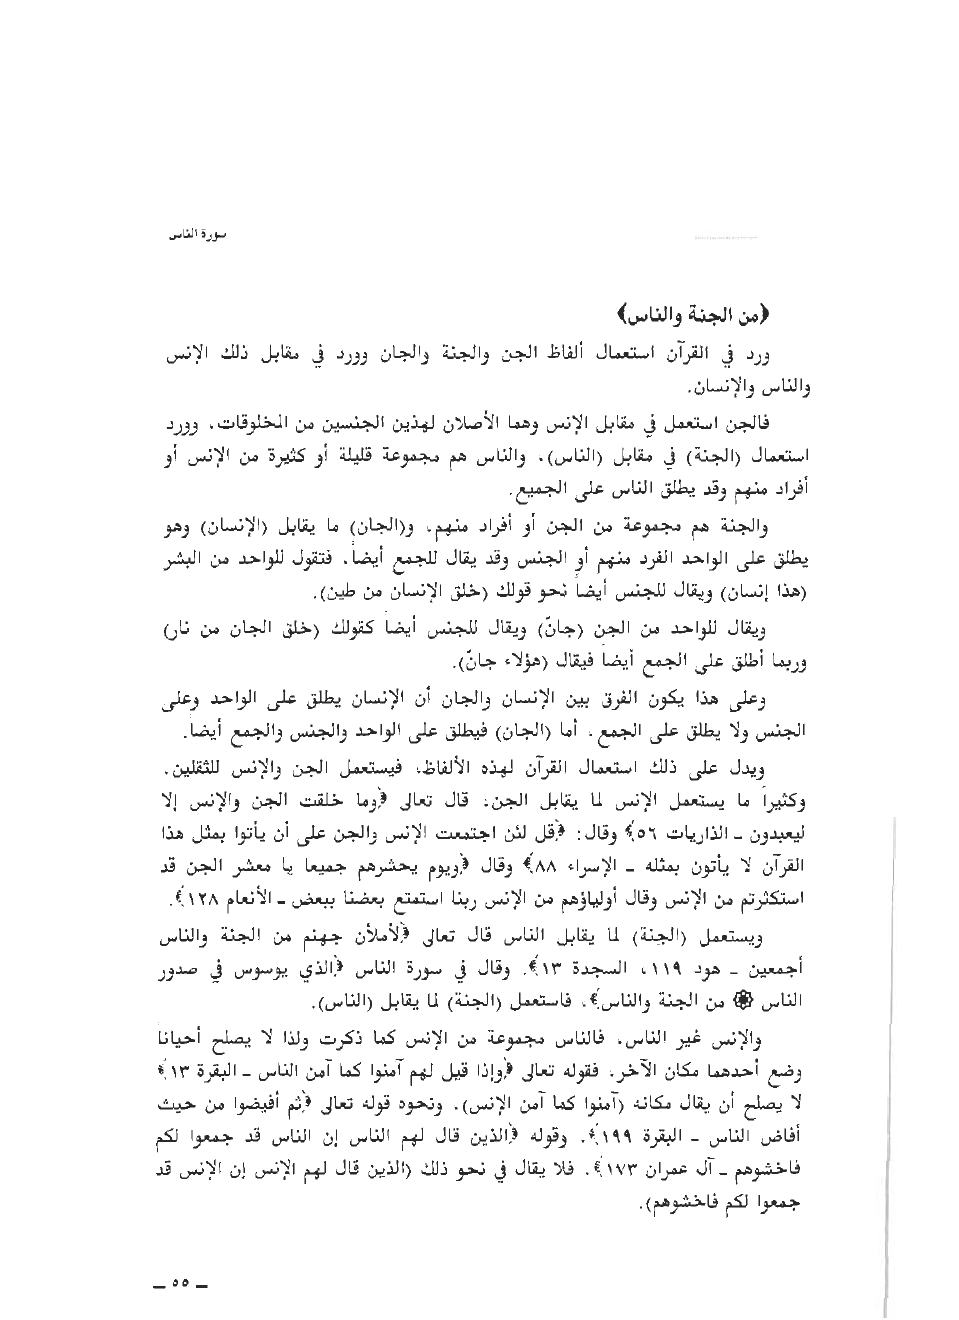 سورة الناس
﴿من الجنة والناس﴾
ورد في القرآن استعمال ألفاظ الجن والجنة والجان وورد في مقابل ذلك الإنس
والناس والإنسان.
فالجن استعمل في مقابل الإنس وهما الأصلان لهذين الجنسين من المخلوقات، وورد
استعمال (الجنة) في مقابل (الناس)، والناس هم مجموعة قليلة أو كثيرة من الإنس أو
أفراد منهم وقد يطلق الناس على الجميع.
والجنة هم مجموعة من الجن أو أفراد منهم، و(الجان) ما يقابل (الإنسان) وهو
يطلق على الواحد الفرد منهم أو الجنس وقد يقال للجمع أيضاً، فتقول للواحد من البشر
(هذا إنسان) ويقال للجنس أيضاً نحو قولك (خلق الإنسان من طين).
ويقال للواحد من الجن (جانّ) ويقال للجنس أيضاً كقولك (خلق الجان من نار)
وربما أطلق على الجمع أيضاً فيقال (هؤلاء جانّ).
وعلى هذا يكون الفرق بين الإنسان والجان أن الإنسان يطلق على الواحد وعلى
الجنس ولا يطلق على الجمع، أما (الجان) فيطلق على الواحد والجنس والجمع أيضاً.
ويدل على ذلك استعمال القرآن لهذه الألفاظ، فيستعمل الجن والإنس للثقلين،
وكثيراً ما يستعمل الإنس لما يقابل الجن، قال تعالى ﴿وما خلقت الجن والإنس إلا
ليعبدون ـ الذاريات ٥٦﴾ وقال: ﴿قل لئن اجتمعت الإنس والجن على أن يأتوا بمثل هذا
القرآن لا يأتون بمثله ـ الإسراء ٨٨﴾ وقال ﴿ويوم يحشرهم جميعا يا معشر الجن قد
استكثرتم من الإنس وقال أولياؤهم من الإنس ربنا استمتع بعضنا ببعض ـ الأنعام ١٢٨﴾.
ويستعمل (الجنة) لما يقابل الناس قال تعالى ﴿لأملأن جهنم من الجنة والناس
أجمعين ـ هود ١١٩، السجدة ١٣﴾. وقال في سورة الناس ﴿الذي يوسوس في صدور
الناس ۞ من الجنة والناس﴾، فاستعمل (الجنة) لما يقابل (الناس).
والإنس غير الناس، فالناس مجموعة من الإنس كما ذكرت ولذا لا يصلح أحيانا
وضع أحدهما مكان الآخر، فقوله تعالى ﴿وإذا قيل لهم آمنوا كما آمن الناس ـ البقرة ١٣﴾
لا يصلح أن يقال مكانه (آمنوا كما آمن الإنس). ونحوه قوله تعالى ﴿ثم أفيضوا من حيث
أفاض الناس ـ البقرة ١٩٩﴾. وقوله ﴿الذين قال لهم الناس إن الناس قد جمعوا لكم
فاخشوهم ـ آل عمران ١٧٣﴾. فلا يقال في نحو ذلك (الذين قال لهم الإنس إن الإنس قد
جمعوا لكم فاخشوهم).
ـ ٥٥ ـ